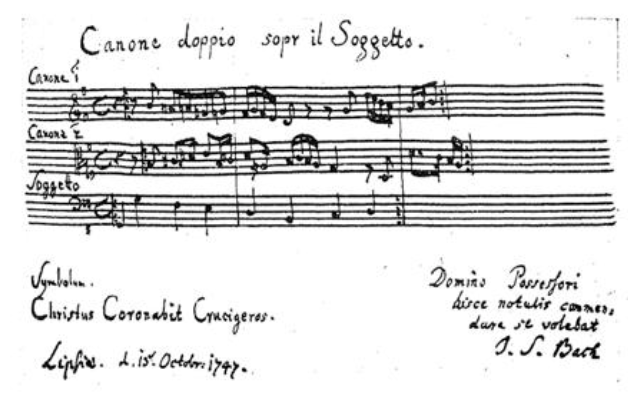 Canone doppio sopr il Soggetto.
Canone 1
Canone 2
Soggetto
Symbolum.
Christus Coronabit Crucigeros.
Lipsiae. d. 15. Octobr: 1747.
Domino Possessori
hisce notulis commen-
dare se volebat
J. S. Bach